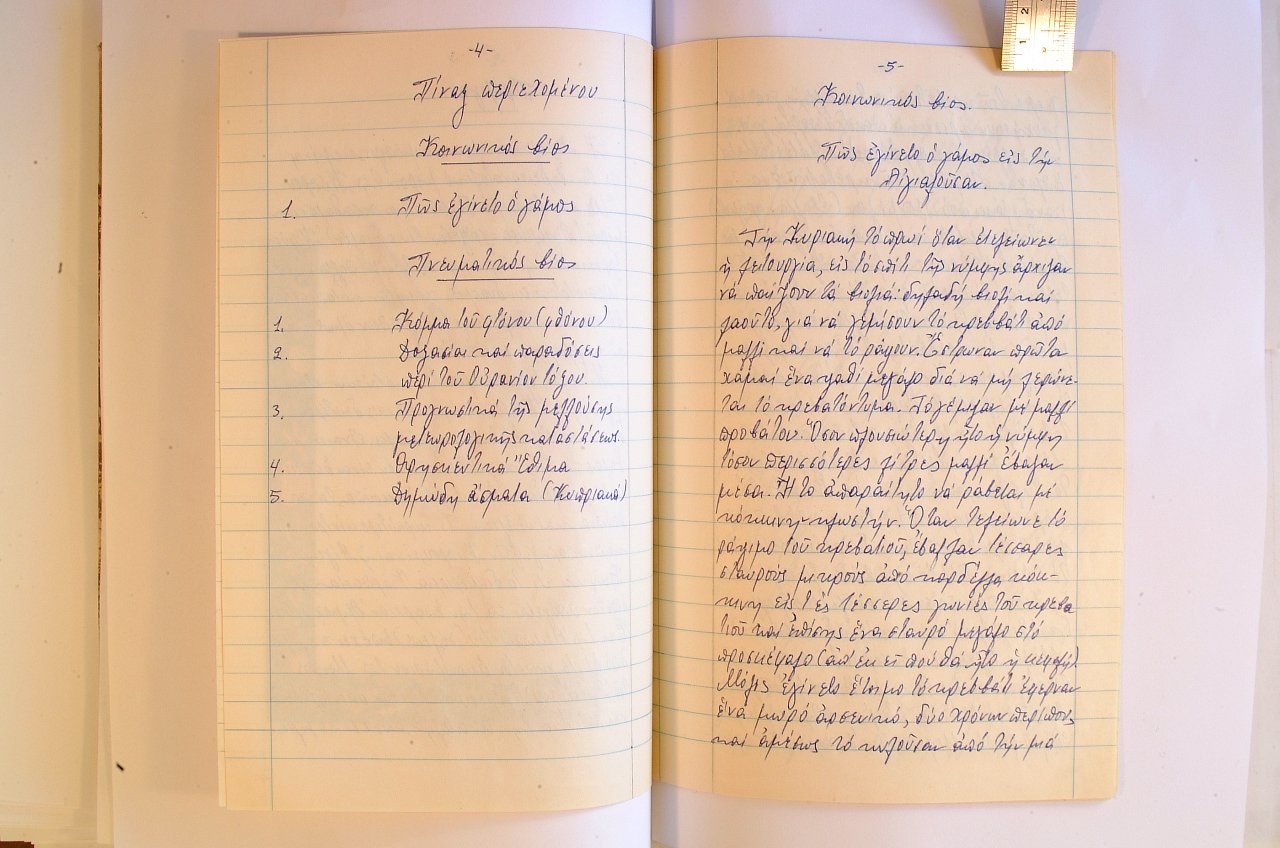 -4-
Πίναξ περιεχομένου
Κοινωνικός βίος
1. Πῶς ἐγίνετο ὁ γάμος
Πνευματικός βίος
1. Κόμμα τοῦ φτόνου (φθόνου)
2. Δοξασίαι καί παραδόσεις
περί τοῦ Οὐρανίου τόξου.
3. Προγνωστικά τῆς μελλούσης
μετεωρολογικῆς καταστάσεως.
4. Θρησκευτικά Ἔθιμα
5. Δημώδη ἄσματα (Κυπριακά)
-5-
Κοινωνικός βίος.
Πῶς ἐγίνετο ὁ γάμος εἰς τήν
Αἰγιαλοῦσαν.
Τήν Κυριακή τό πρωί ὅταν ἐτελείωνεν
ἡ λειτουργία, εἰς τό σπίτι τῆς νύμφης ἄρχιζαν
νά παίζουν τά βιολιά· δηλαδή βιολί καί
λαοῦτο, γιά νά γεμίσουν τό κρεββάτι ἀπό
μαλλί καί νά τό ράψουν. Ἔστρωναν πρῶτα
χάμαί ἕνα ψαθί μεγάλο διά νά μή λερώνε-
ται τό κρεβατόντυμα. Τό γέμιζαν μέ μαλλί
προβάτου. Ὅσον πλουσιώτερη ἦτο ἡ νύμφη
τόσον περισσότερες λίτρες μαλλί ἔβαζαν
μέσα. Ἦτο ἀπαραίτητο νά ράβεται μέ
κόκκινην κλωστήν. Ὅταν τελείωνε τό
ράψιμο τοῦ κρεβατιοῦ, ἔβαζαν τέσσαρες
σταυρούς μικρούς ἀπό κορδέλλα κόκ-
κινη εἰς τές τέσσερες γωνιές τοῦ κρεβα
τιοῦ καί ἐπίσης ἕνα σταυρό μεγάλο στό
προσκέφαλο (ἀπ' ἐκεῖ πού θά ἦτο ἡ κεφαλή).
Μόλις ἐγίνετο ἕτοιμο τό κρεββάτι ἔφερναν
ἕνα μωρό ἀρσενικό, δύο χρόνων περίπου,
καί ἀμέσως τό κυλοῦσαν ἀπό τήν μιά